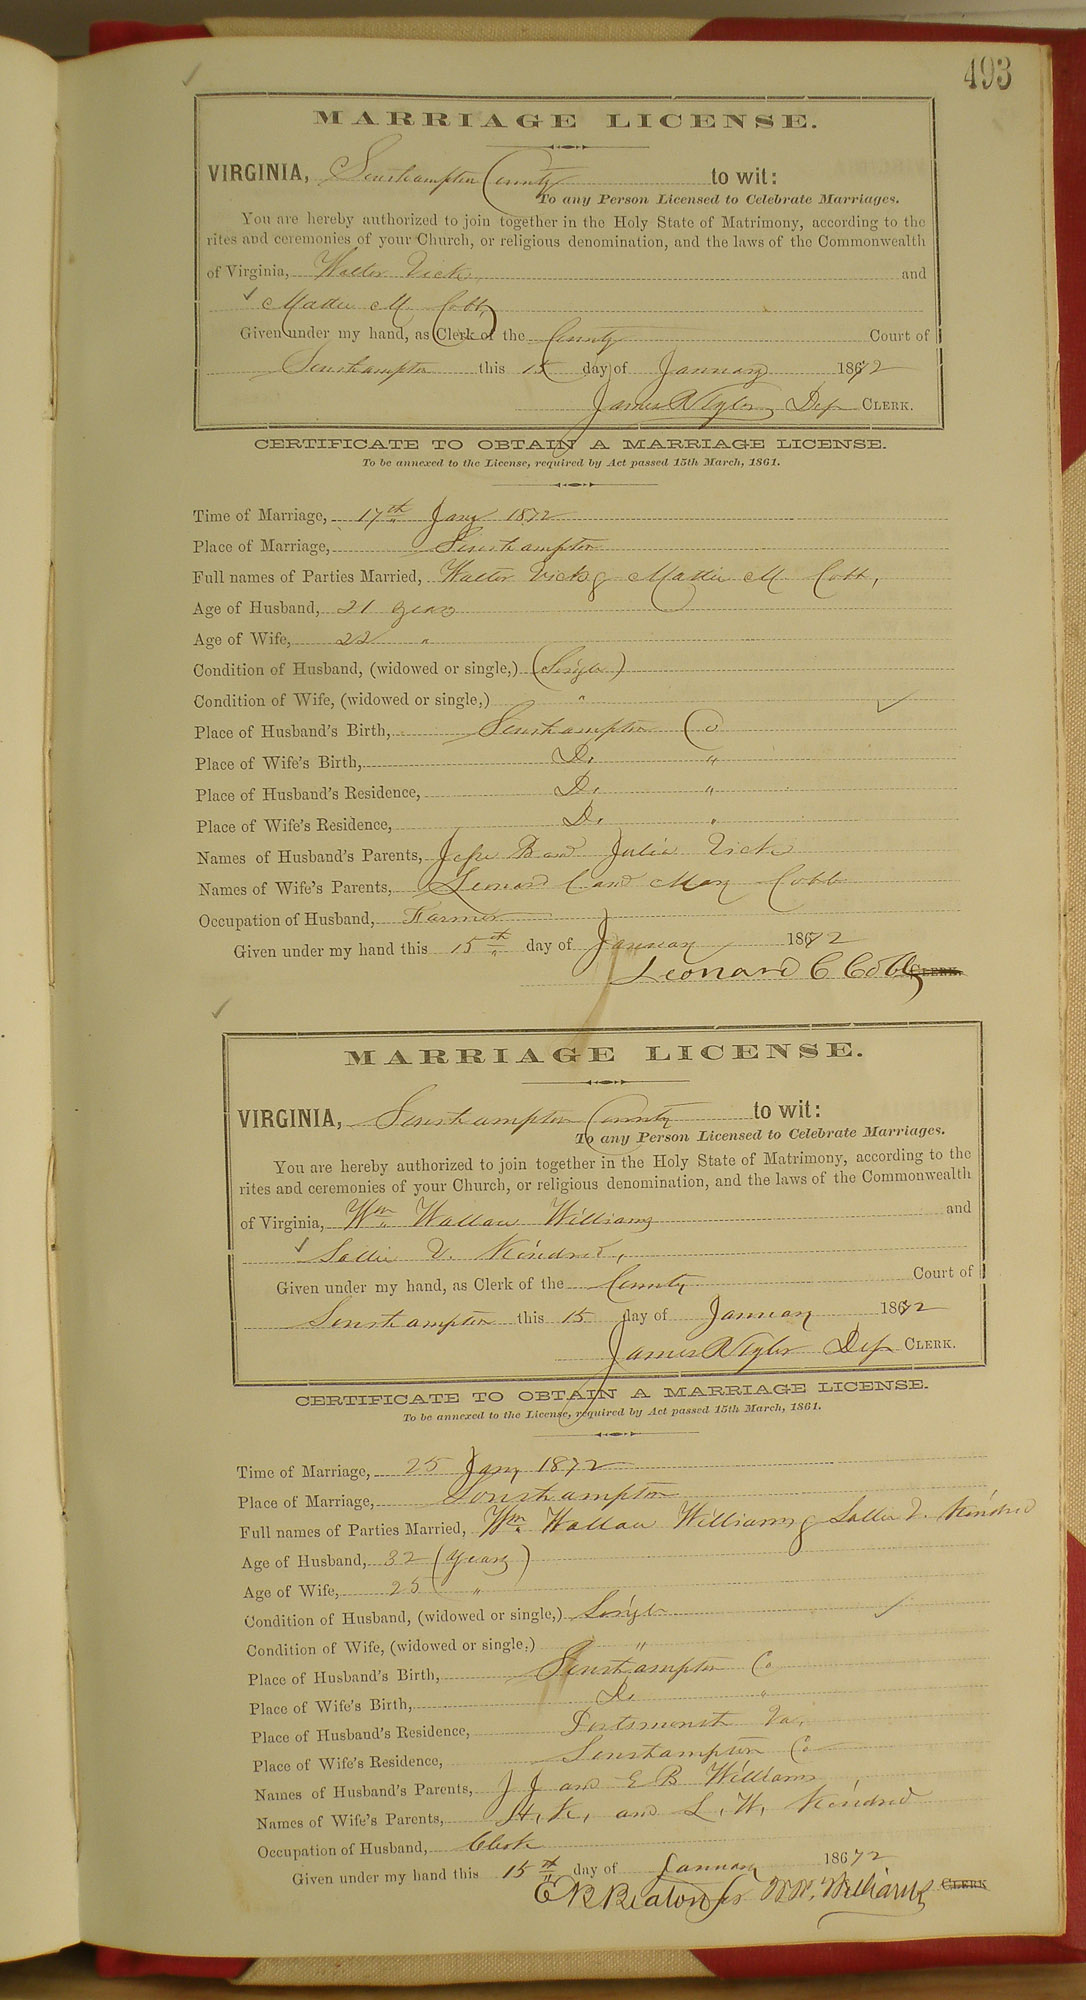 493
MARRIAGE LICENSE.
VIRGINIA, Southampton County to wit:
To any Person Licensed to Celebrate Marriages.
You are hereby authorized to join together in the Holy State of Matrimony, according to the
rites and ceremonies of your Church, or religious denomination, and the laws of the Commonwealth
of Virginia, Walter Vick and
Mattie M. Cobb,
Given under my hand, as Clerk of the County Court of
Southampton this 15 day of January 1872
James R Tyler Dep CLERK.
CERTIFICATE TO OBTAIN A MARRIAGE LICENSE.
To be annexed to the License, required by Act passed 15th March, 1861.
Time of Marriage, 17th Jany 1872
Place of Marriage, Southampton
Full names of Parties Married, Walter Vick & Mattie M. Cobb,
Age of Husband, 21 years
Age of Wife, 22 "
Condition of Husband, (widowed or single,) (Single)
Condition of Wife, (widowed or single,) "
Place of Husband's Birth, Southampton Co
Place of Wife's Birth, Do "
Place of Husband's Residence, Do "
Place of Wife's Residence, Do "
Names of Husband's Parents, Jesse B and Julia Vick
Names of Wife's Parents, Leonard C and Mary Cobb
Occupation of Husband, Farmer
Given under my hand this 15th day of January 1872
Leonard C Cobb CLERK.
MARRIAGE LICENSE.
VIRGINIA, Southampton County to wit:
To any Person Licensed to Celebrate Marriages.
You are hereby authorized to join together in the Holy State of Matrimony, according to the
rites and ceremonies of your Church, or religious denomination, and the laws of the Commonwealth
of Virginia, Wm Wallace Williams and
Sallie V. Kindred,
Given under my hand, as Clerk of the County Court of
Southampton this 15 day of January 1872
James R Tyler Dep CLERK.
CERTIFICATE TO OBTAIN A MARRIAGE LICENSE.
To be annexed to the License, required by Act passed 15th March, 1861.
Time of Marriage, 25 Jany 1872
Place of Marriage, Southampton
Full names of Parties Married, Wm Wallace Williams & Sallie V. Kindred
Age of Husband, 32 (years)
Age of Wife, 25 "
Condition of Husband, (widowed or single,) Single
Condition of Wife, (widowed or single.) "
Place of Husband's Birth, Southampton Co
Place of Wife's Birth, Do "
Place of Husband's Residence, Portsmouth Va,
Place of Wife's Residence, Southampton Co
Names of Husband's Parents, J J and E B Williams
Names of Wife's Parents, H. K. and L. W. Kindred
Occupation of Husband, Clerk
Given under my hand this 15th day of January 1872
E R Beaton for W W. Williams CLERK